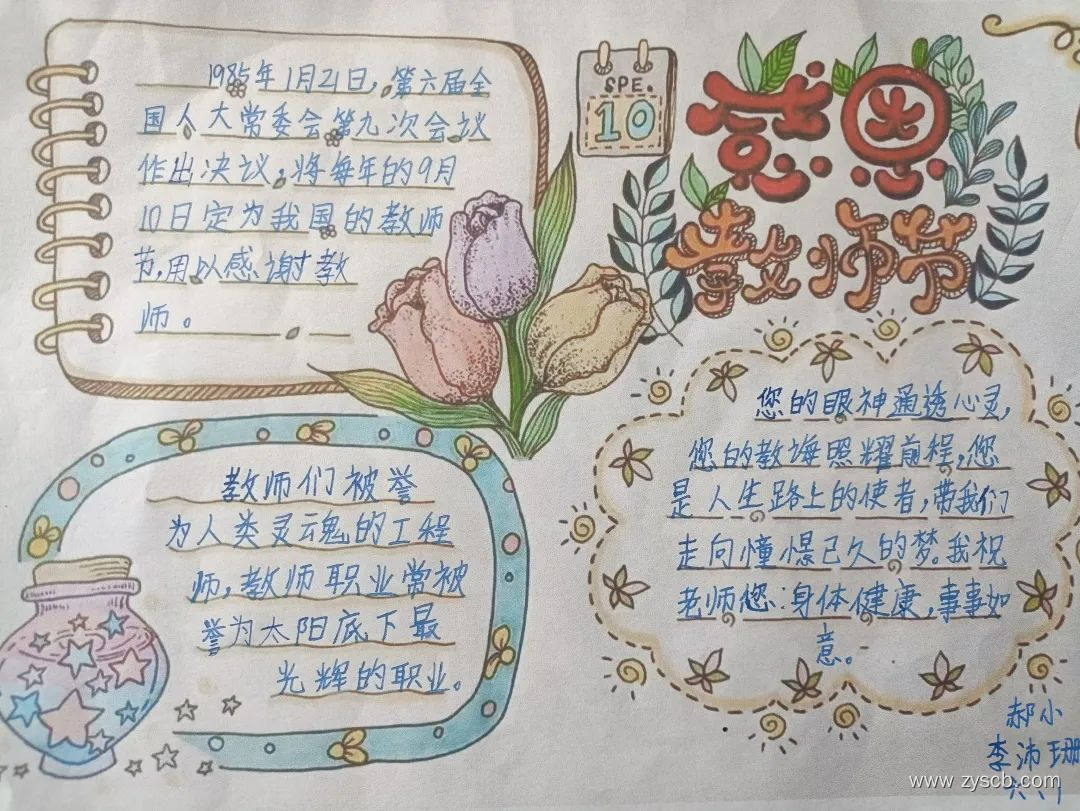 1985年1月21日,第六届全
国人大常委会第九次会议
作出决议,将每年的9月
10日定为我国的教师
节,用以感谢教
师。
SPE.
10
感恩
教师节
教师们被誉
为人类灵魂的工程
师,教师职业常被
誉为太阳底下最
光辉的职业。
您的眼神通透心灵,
您的教诲照耀前程,您
是人生路上的使者,带我们
走向憧憬已久的梦。我祝
老师您:身体健康,事事如
意。
郝小
李沛珊
www.zyscb.com